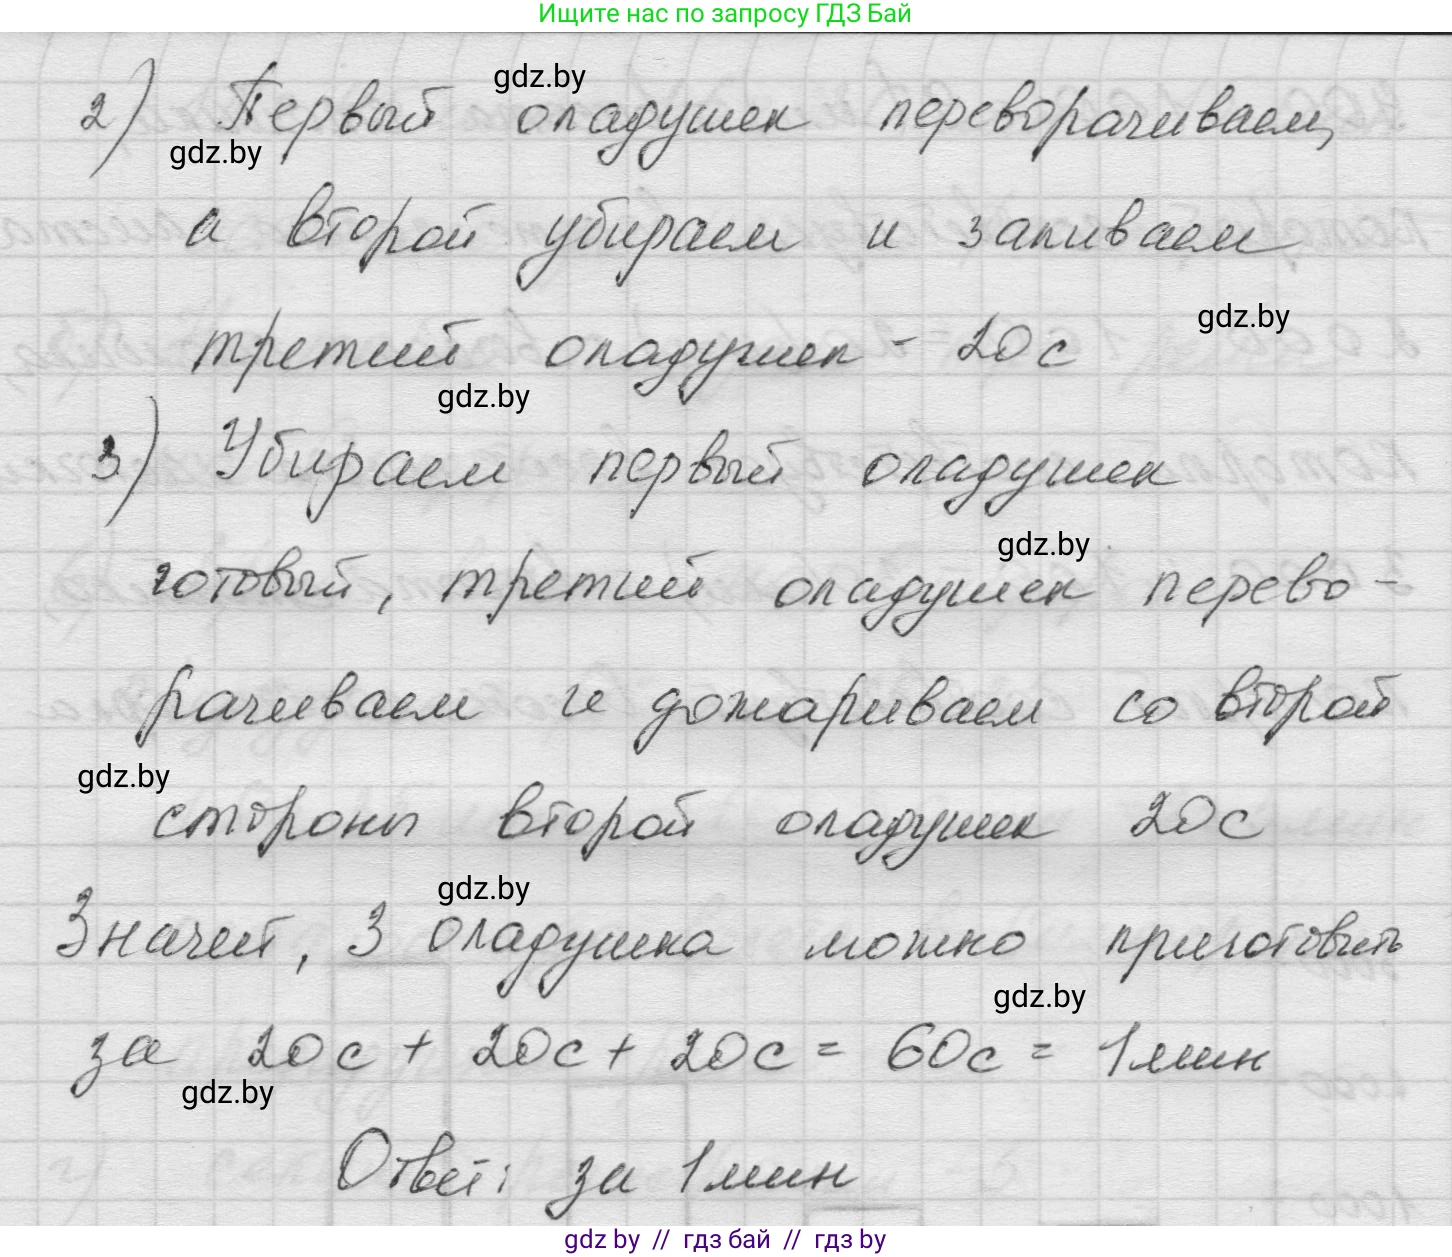 Ищите нас по запросу ГДЗ Бай
gdz.by
2) Первый оладушек переворачиваем,
gdz.by
а второй убираем и запиваем
gdz.by
третий оладушек - 20 с
gdz.by
3) Убираем первый оладушек
gdz.by
готовый, третий оладушек перево-
рачиваем и дожариваем со второй
gdz.by
стороны второй оладушек 20 с
gdz.by
Значит, 3 оладушка можно приготовить
gdz.by
за 20 с + 20 с + 20 с = 60 с = 1 мин
gdz.by
Ответ: за 1 мин
gdz by // гдз бай // гдз by